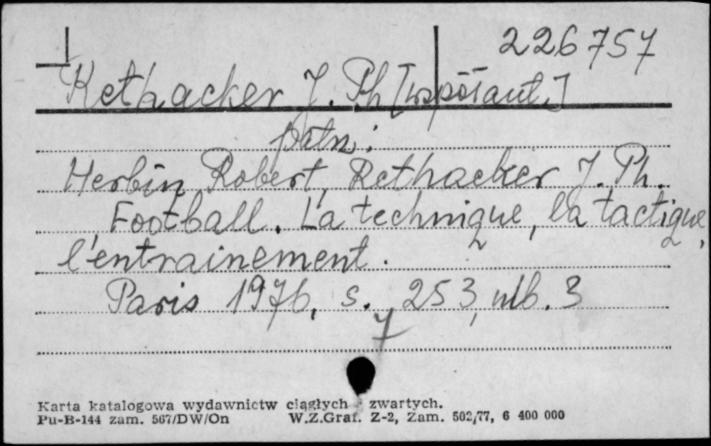 226757
Rethacker J. Ph [współaut.]
patrz:
Herbin Robert, Rethacker J. Ph.
Football. La technique, la tactique,
l'entrainement.
Paris 1976, s. 253, nlb. 3
7
Karta katalogowa wydawnictw ciągłych i zwartych.
Pu-B-144 zam. 567/DW/On W.Z.Graf. Z-2, Zam. 502/77, 6 400 000